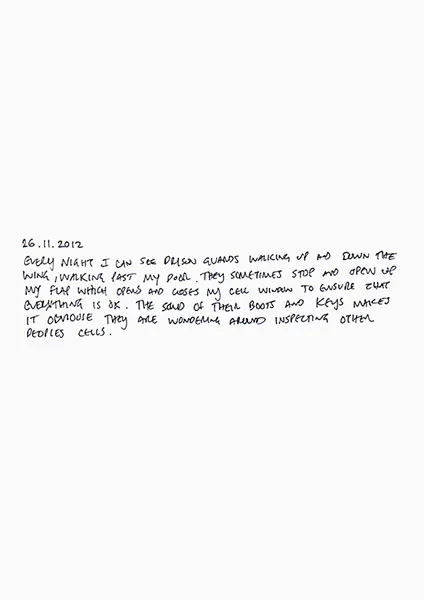 26.11.2012
EVERY NIGHT I CAN SEE PRISON GUARDS WALKING UP AND DOWN THE
WING, WALKING PAST MY DOOR. THEY SOMETIMES STOP AND OPEN UP
MY FLAP WHICH OPENS AND CLOSES MY CELL WINDOW TO ENSURE THAT
EVERYTHING IS OK. THE SOUND OF THEIR BOOTS AND KEYS MAKES
IT OBVIOUSE THEY ARE WONDERING AROUND INSPECTING OTHER
PEOPLES CELLS.